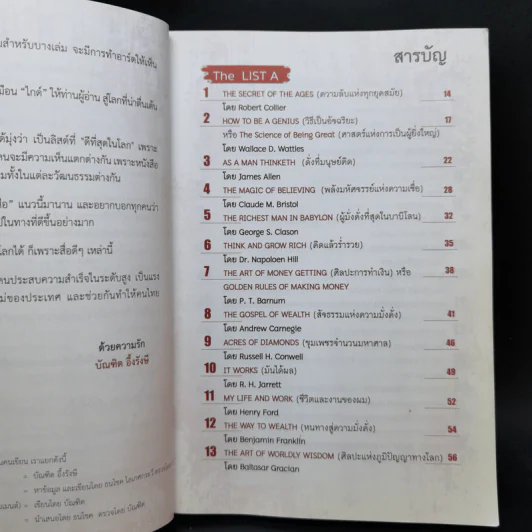 นสำหรับบางเล่ม จะมีการทำอาร์ตให้เห็น
มือน "ไกด์" ให้ท่านผู้อ่าน สู่โลกที่น่าตื่นเต้น
ด้มุ่งว่า เป็นลิสต์ที่ "ดีที่สุดในโลก" เพราะ
นจะมีความเห็นแตกต่างกัน เพราะหนังสือ
มทั้งในแต่ละวัฒนธรรมต่างกัน
อ" แนวนี้มานาน และอยากบอกทุกคนว่า
ปในทางที่ดีขึ้นอย่างมาก
โลกได้ ก็เพราะสื่อดีๆ เหล่านี้
คนประสบความสำเร็จในระดับสูง เป็นแรง
ม่ของประเทศ และช่วยกันทำให้คนไทย
ด้วยความรัก
บัณฑิต อึ้งรังษี
คนเขียน เราแยกดังนี้
- บัณฑิต อึ้งรังษี
- เขียนโดย บัณฑิต
- นำเสนอโดย ธนโชค ตรวจโดย บัณฑิต
สารบัญ
The LIST A
1 THE SECRET OF THE AGES (ความลับแห่งทุกยุคสมัย) 14
โดย Robert Collier
2 HOW TO BE A GENIUS (วิธีเป็นอัจฉริยะ) 17
หรือ The Science of Being Great (ศาสตร์แห่งการเป็นผู้ยิ่งใหญ่)
โดย Wallace D. Wattles
3 AS A MAN THINKETH (ดั่งที่มนุษย์คิด) 22
โดย James Allen
4 THE MAGIC OF BELIEVING (พลังมหัศจรรย์แห่งความเชื่อ) 28
โดย Claude M. Bristol
5 THE RICHEST MAN IN BABYLON (ผู้มั่งคั่งที่สุดในบาบิโลน) 32
โดย George S. Clason
6 THINK AND GROW RICH (คิดแล้วร่ำรวย) 35
โดย Dr. Napoloen Hill
7 THE ART OF MONEY GETTING (ศิลปะการทำเงิน) หรือ 38
GOLDEN RULES OF MAKING MONEY
โดย P. T. Barnum
8 THE GOSPEL OF WEALTH (สัจธรรมแห่งความมั่งคั่ง) 41
โดย Andrew Carnegie
9 ACRES OF DIAMONDS (ขุมเพชรจำนวนมหาศาล) 46
โดย Russell H. Conwell
10 IT WORKS (มันได้ผล) 49
โดย R. H. Jarrett
11 MY LIFE AND WORK (ชีวิตและงานของผม) 52
โดย Henry Ford
12 THE WAY TO WEALTH (หนทางสู่ความมั่งคั่ง) 54
โดย Benjamin Franklin
13 THE ART OF WORLDLY WISDOM (ศิลปะแห่งภูมิปัญญาทางโลก) 56
โดย Baltasar Gracian